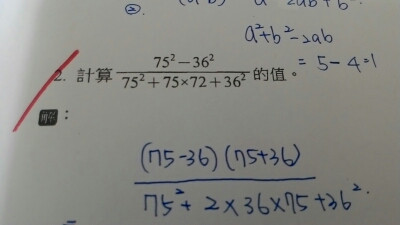 ②.
a²+b²-2ab
= 5-4=1
2. 計算 75²-36² / 75²+75×72+36² 的值。
解:
(75-36)(75+36)
75²+2×36×75+36²